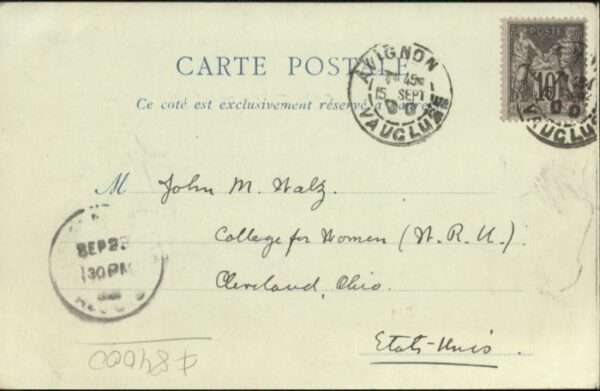 CARTE POSTALE
Ce coté est exclusivement réservé à l'adresse
AVIGNON
15 SEPT
VAUCLUSE
POSTE
10
AVIGNON
VAUCLUSE
M John M. Walz.
College for Women (W. R. U.)
Cleveland, Ohio.
Etats-Unis.
SEP 25
130 PM